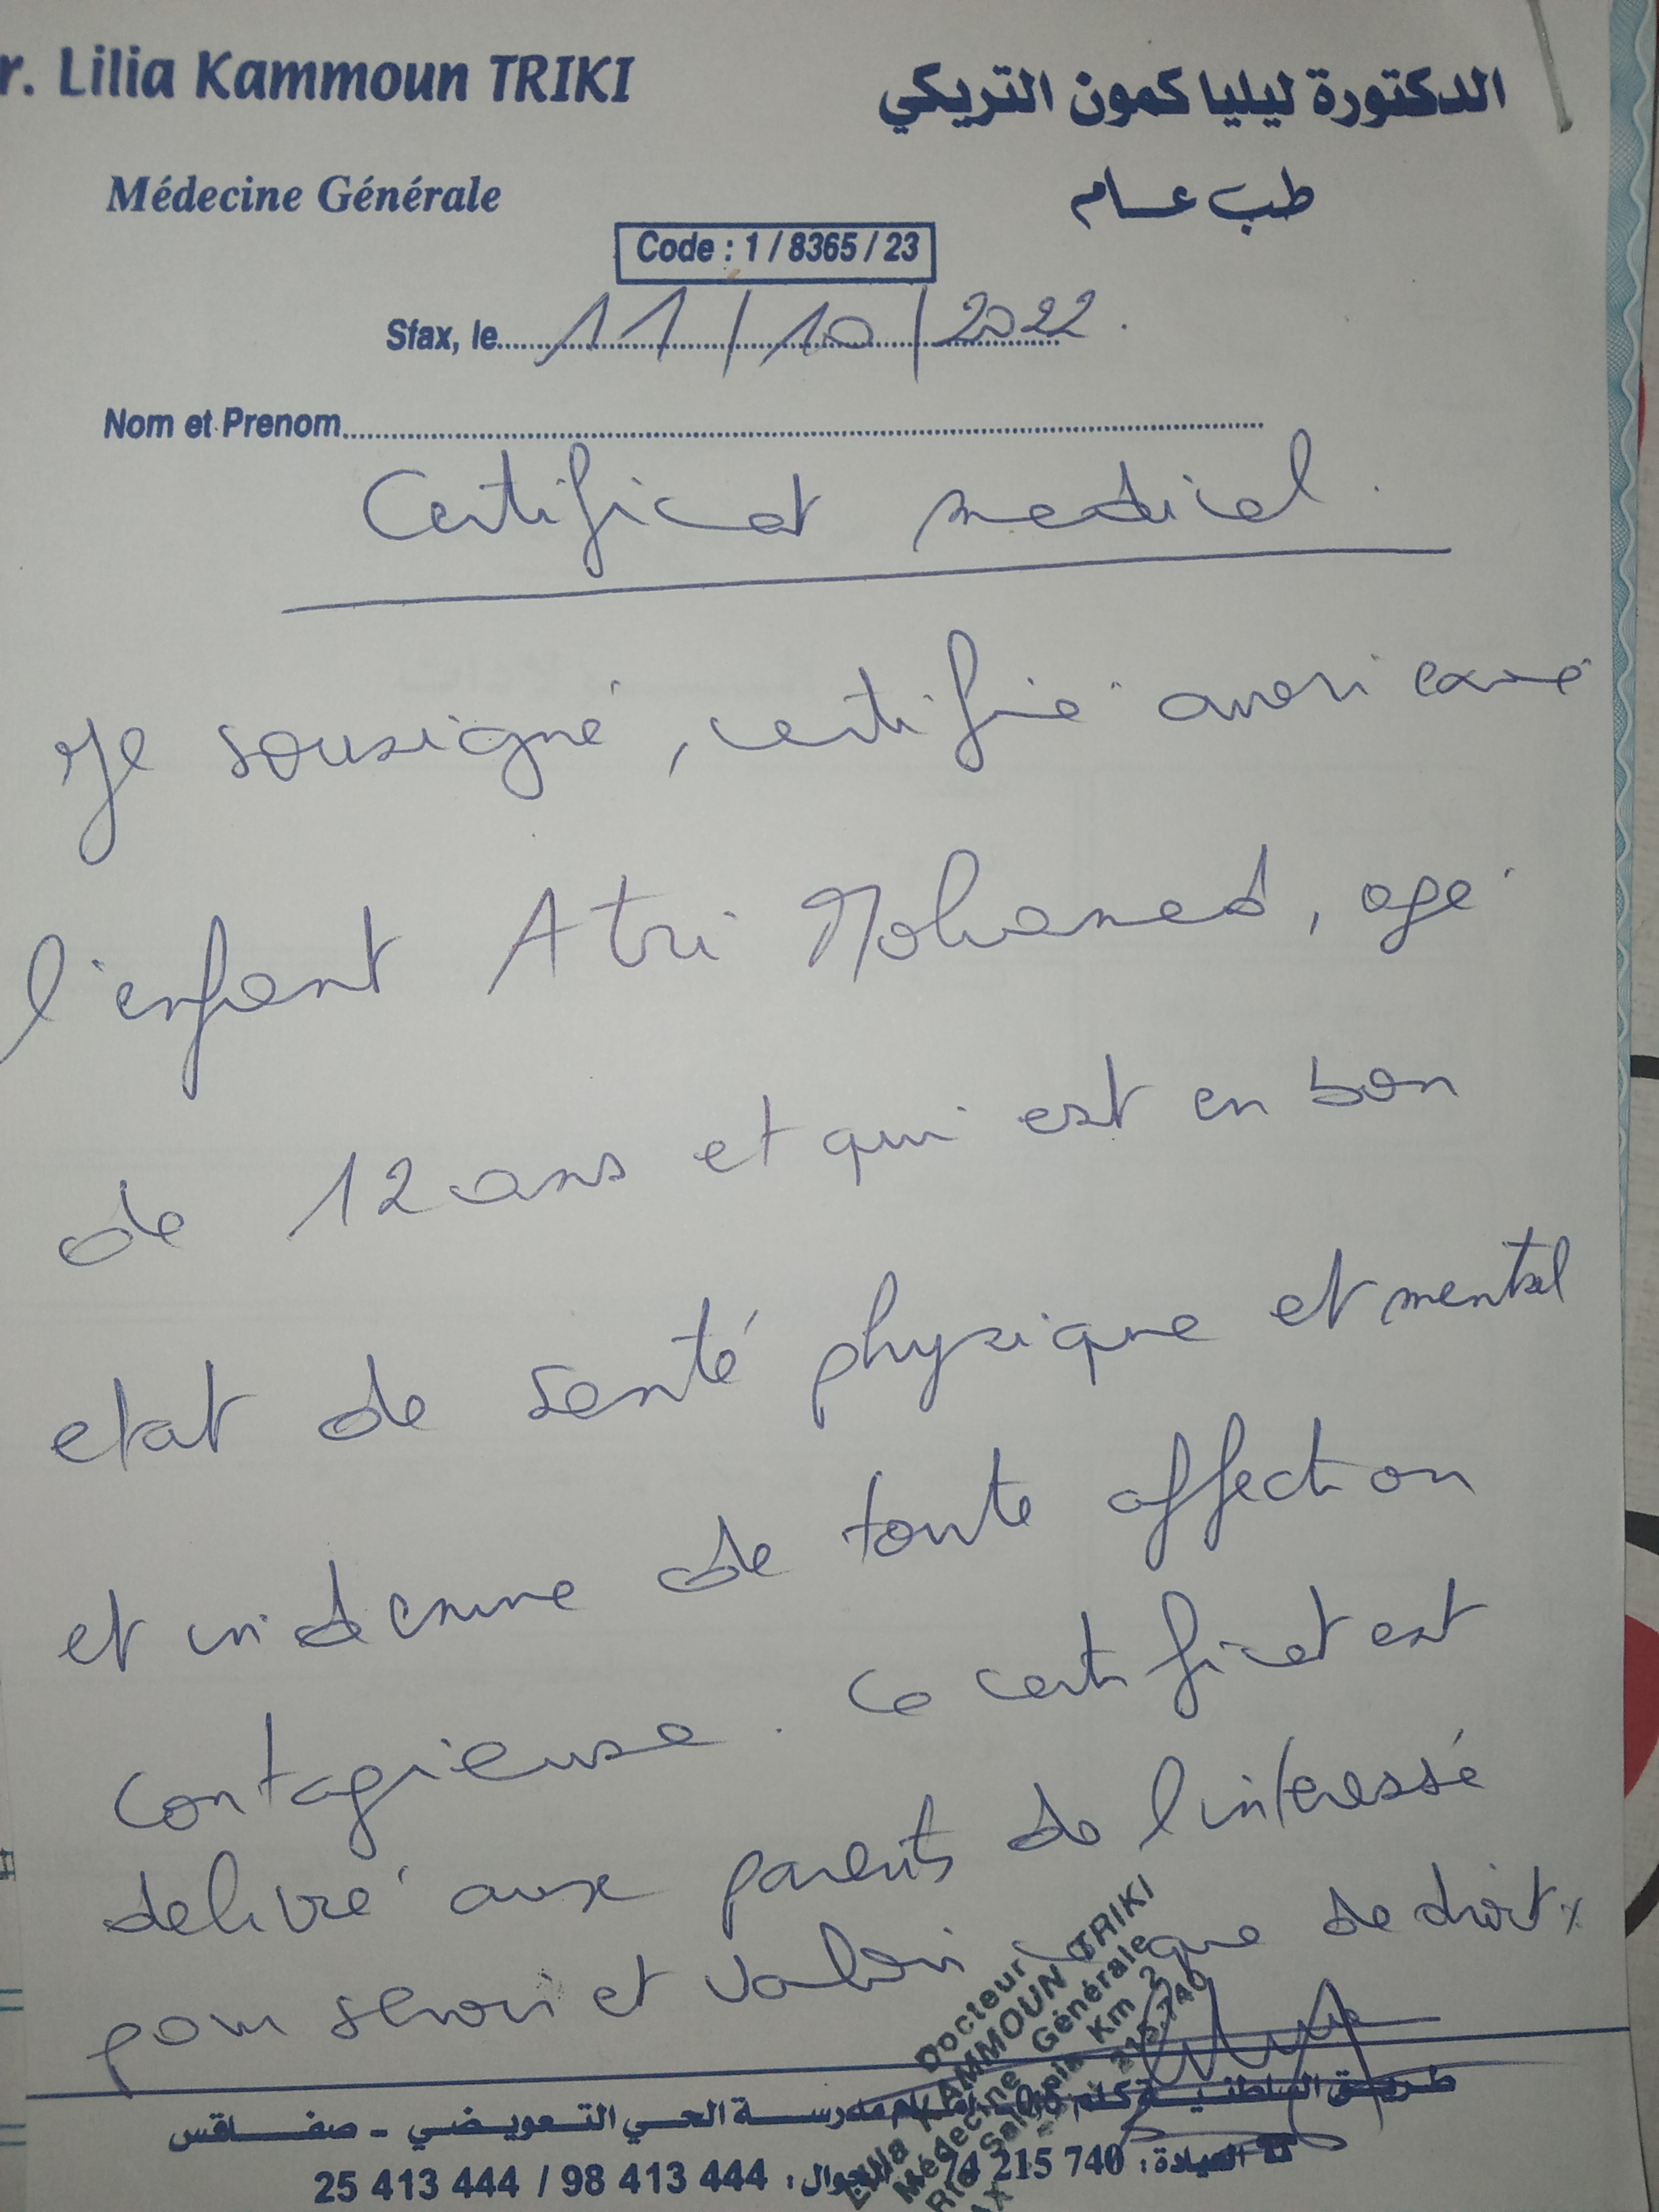 r. Lilia Kammoun TRIKI
الدكتورة ليليا كمون التريكي
Médecine Générale
طب عام
Code : 1 / 8365 / 23
Sfax, le 11/10/2022.
Nom et Prenom
Certificat medical.
Je sousigné, certifie avoir exami
l'enfant Atri Mohamed, agé
de 12 ans et qui est en bon
etat de santé physique et mental
et indemne de toute affection
contagieuse. Ce certificat est
delivré aux parents de l'interessé
pour servir et valoir ce que de droit
Docteur
Lilia KAMMOUN TRIKI
Médecine Générale
Rte Saltania Km 2
215.740
طريق السلطنية كلم أمام مدرسة الحي التعويضي - صفاقس
العيادة : 74 215 740 الجوال : 98 413 444 / 25 413 444